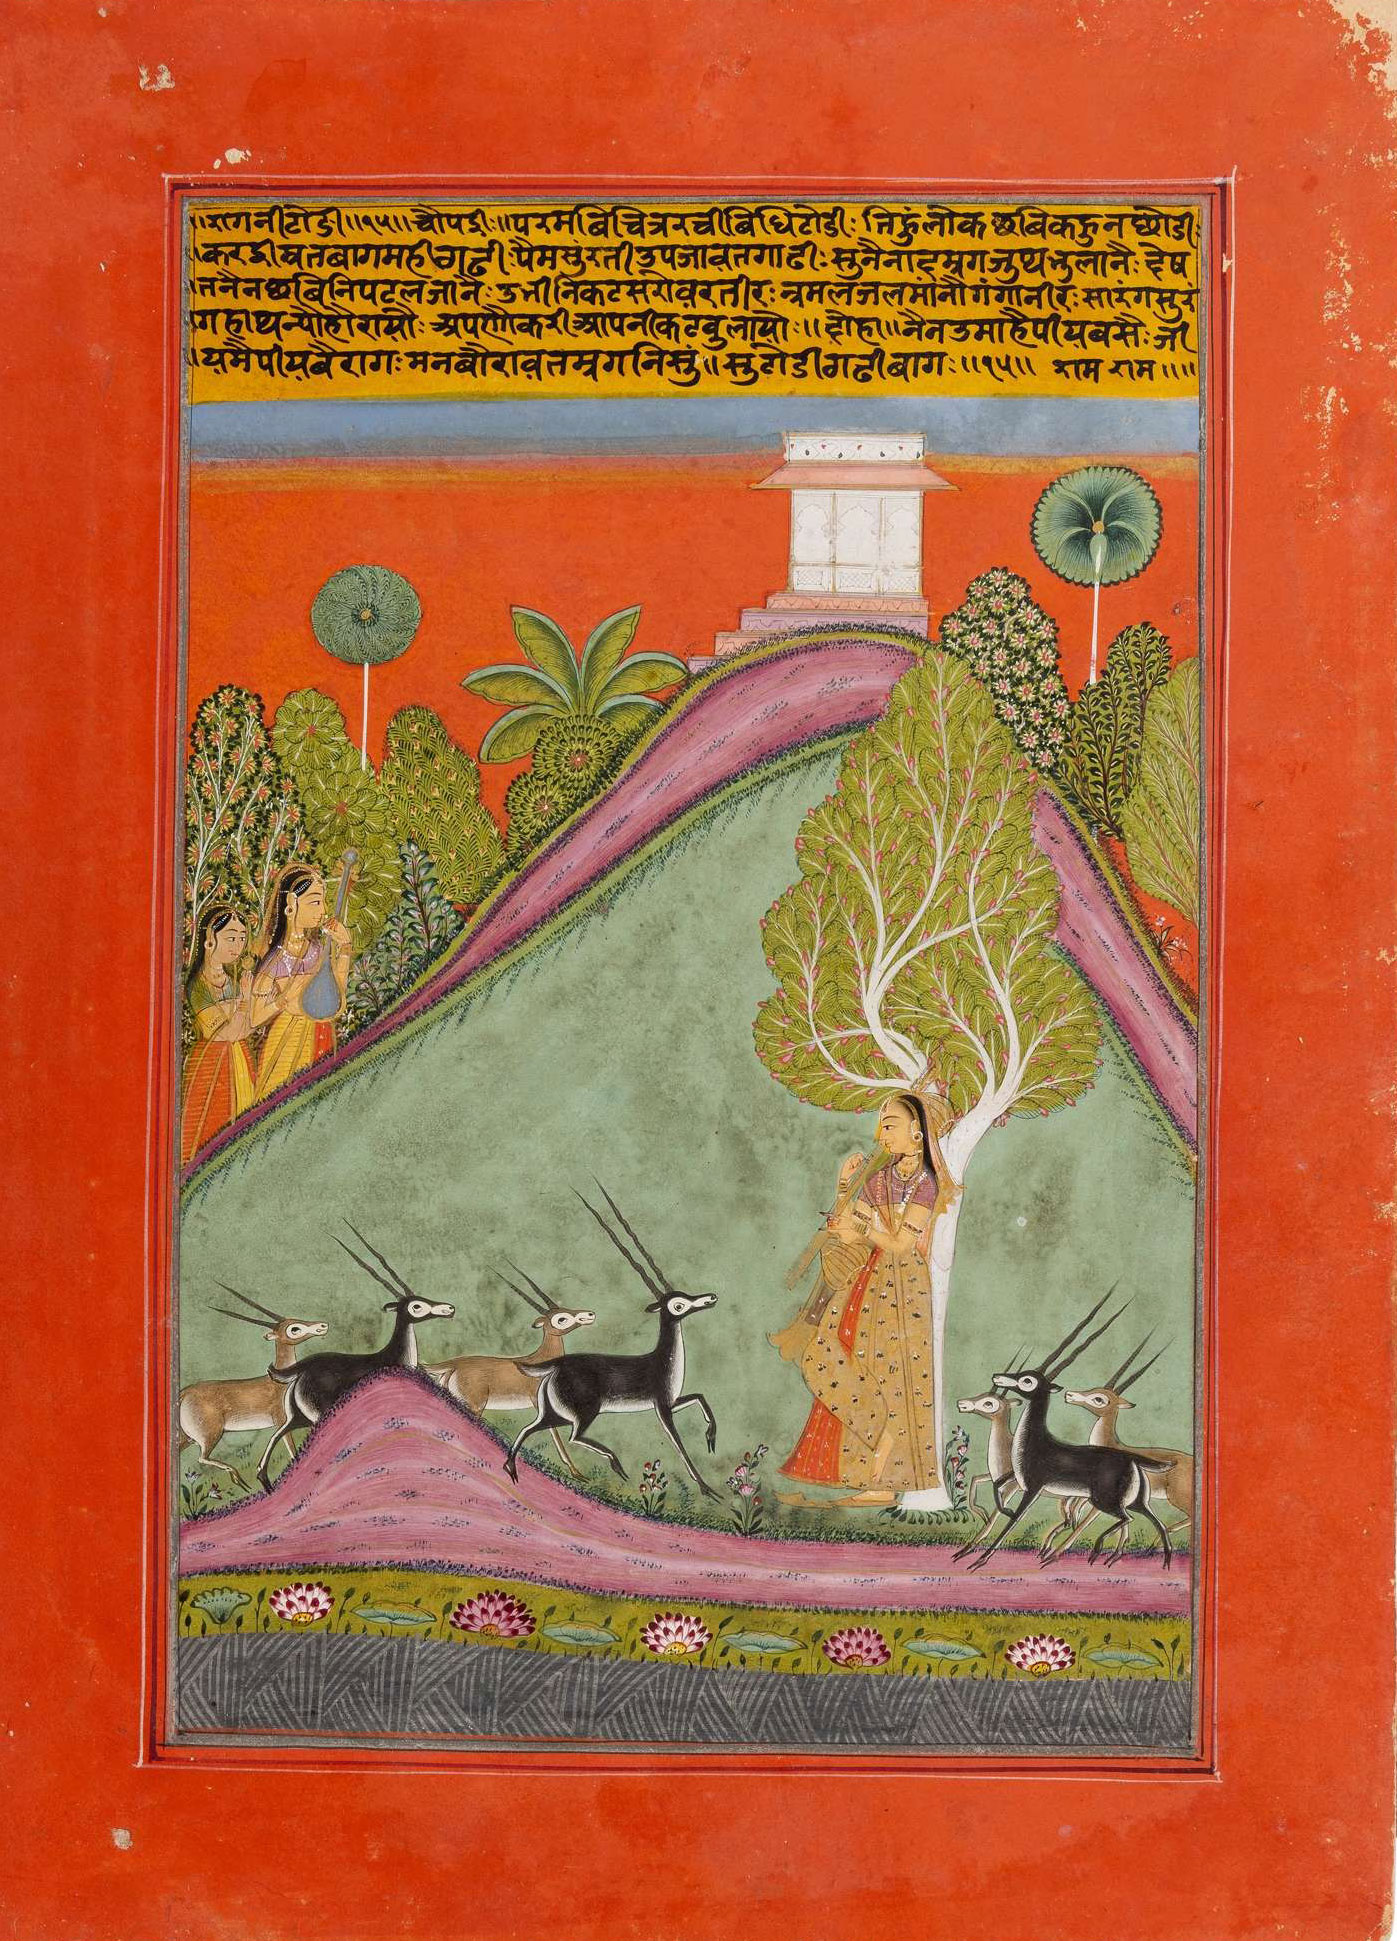 ॥रागनीटोडी॥१५॥चौपई॥परमबिचित्ररचीबिधिटोडी: तिहुंलोकछबिकहुनछोडी:
करदीषतबागमहीगढी:पैमसुंरतीउपजावतगाढी:सुनैनादम्रगजुथभुलानै:देष
तनैनछबिनिपटलजानै:उभीनिकटसरोवरतीर:न्रमलजलमांनौगंगानीर:सारंगसुर
अपणैकरीआपनीकटबुलायौ:॥दोहा॥नैनउमाहैपीयबसै:जी
यमैपीयबैराग:मनबौरावतम्रगनिसुं॥सुटोडीगढीबाग:॥१५॥ राम राम॥॥